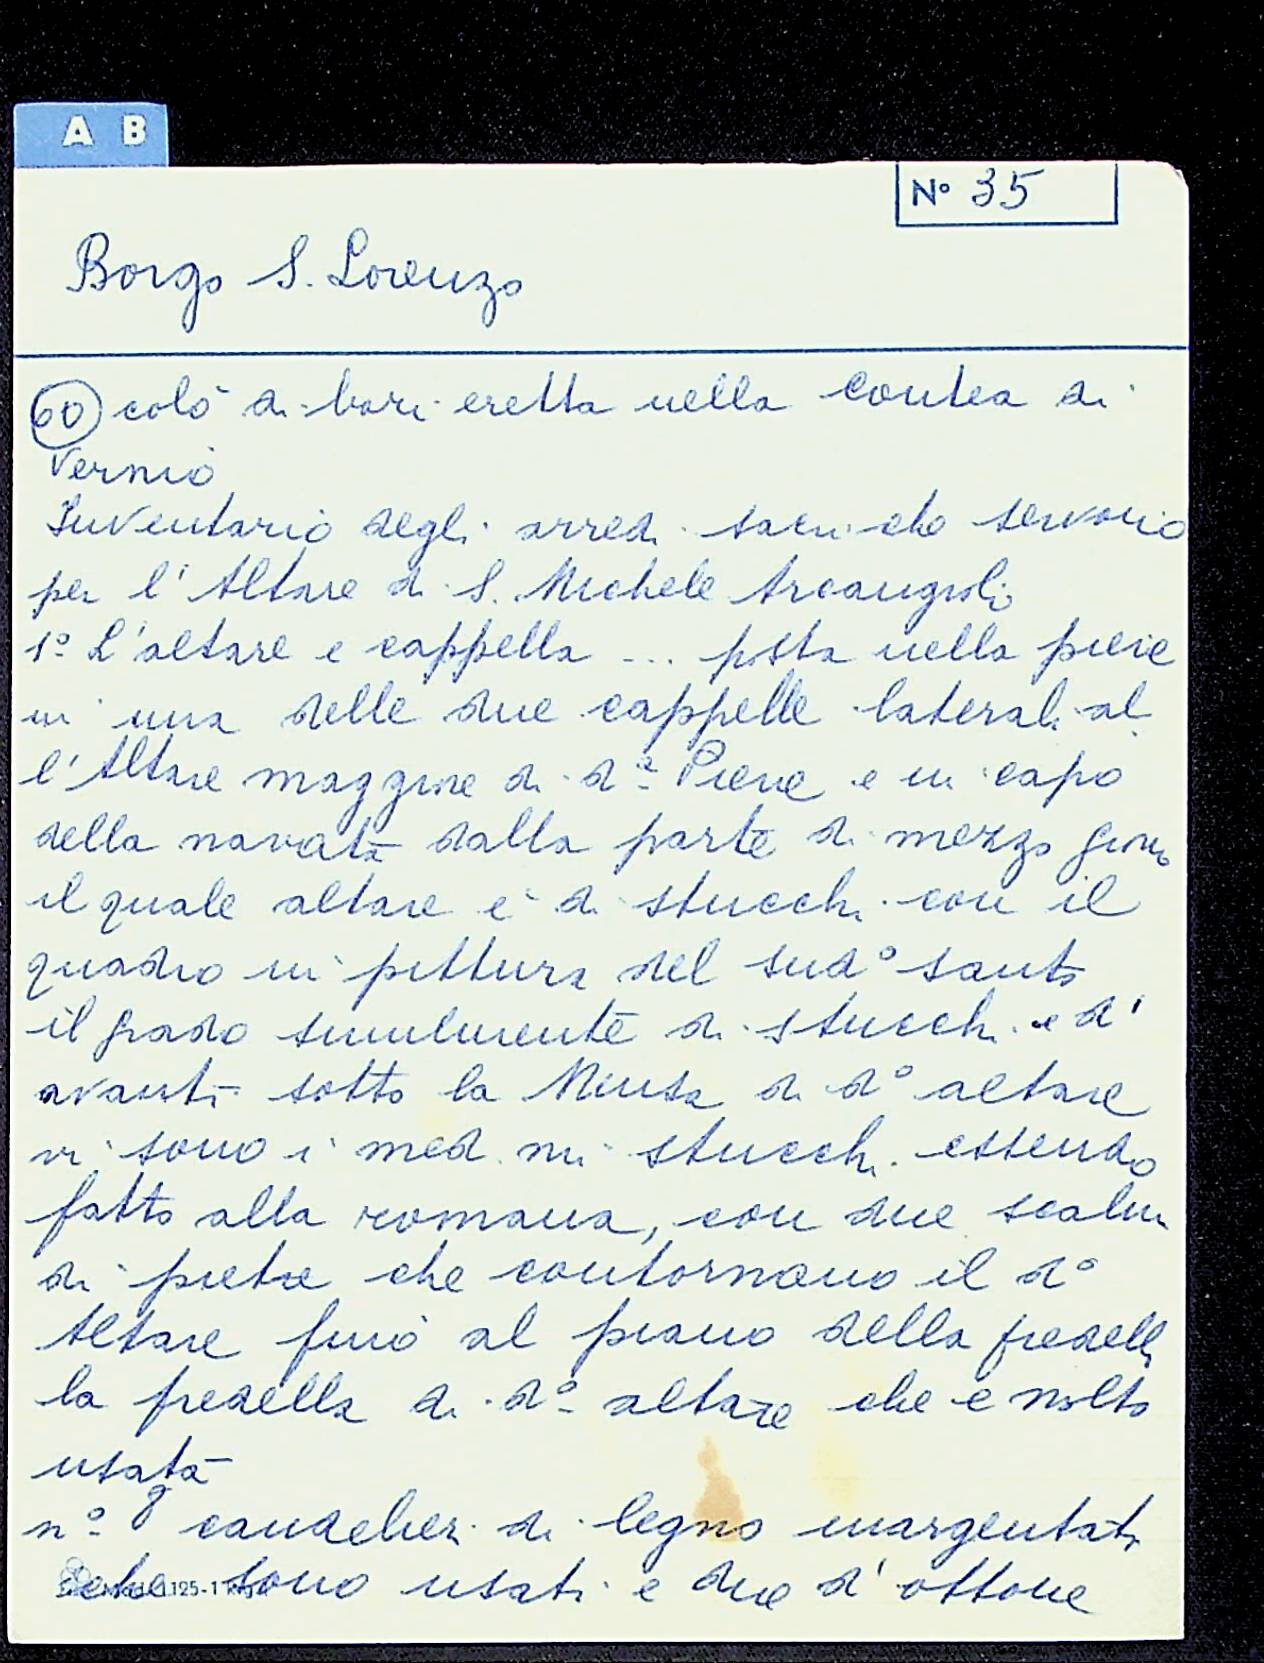 A B
N° 35
Borgo S. Lorenzo
60 colò di bari eretta nella contea di
Vernio
Inventario degli arredi sacri che servono
per l'Altare di S. Michele Arcangioli
1° L'altare e cappella ... posta nella pieve
in una delle due cappelle laterali al
l'Altare maggiore di d.a Pieve e in capo
della navata dalla parte di mezzo giorno
il quale altare è di stucchi con il
quadro in pittura del sud° santo
il grado similmente di stucchi e d'
avanti sotto la Mensa di d° altare
vi sono i med.mi stucchi essendo
fatto alla romana, con due scalini
di pietre che contornano il d°
Altare fino al piano della predella
la predella di d° altare che e molto
usata
n° 8 candelieri di legno inargentati
che sono usati e due d'ottone